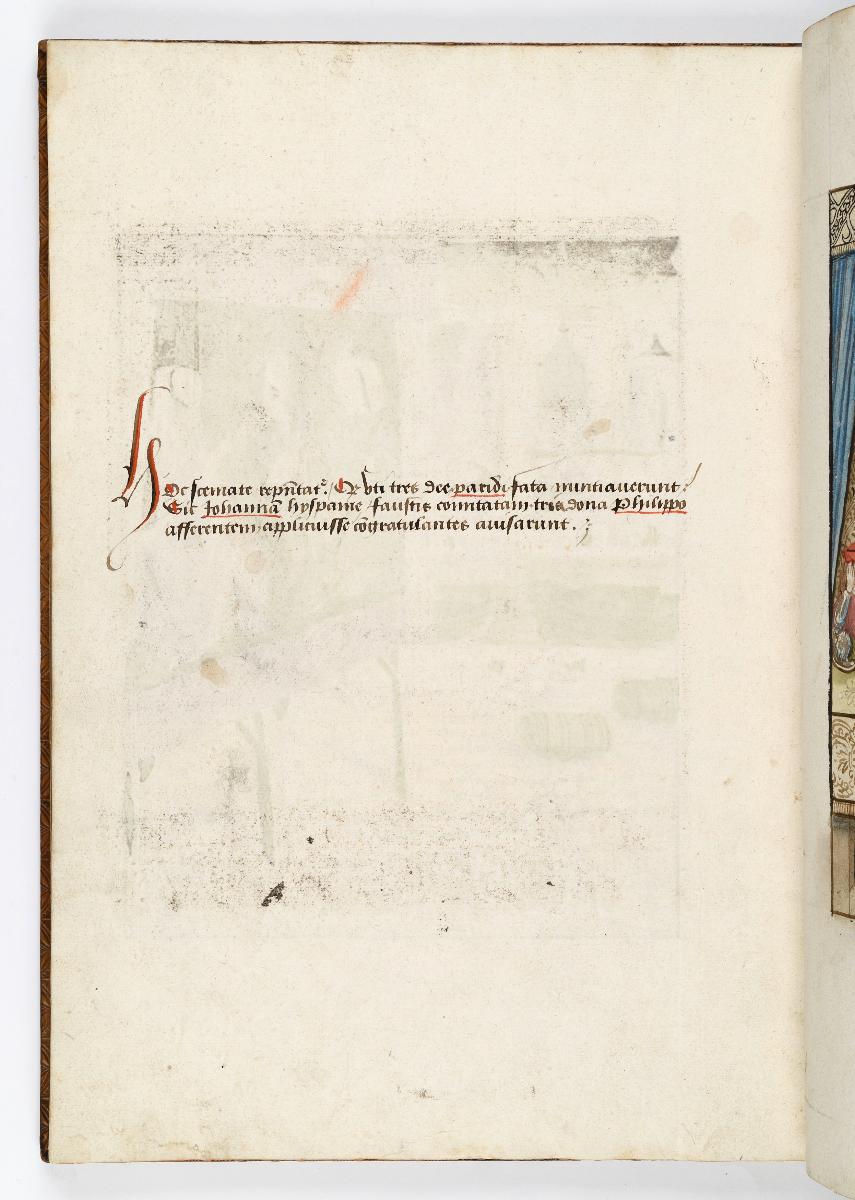 Hoc scemate rep̄ntatᷣ. / Qꝛ vti tres dee paridi fata nuntiauerunt:
Sic Johannā hyspanie faustis comitatam tria dona Philippo
afferentem applicuisse cōgratulantes auisarunt.